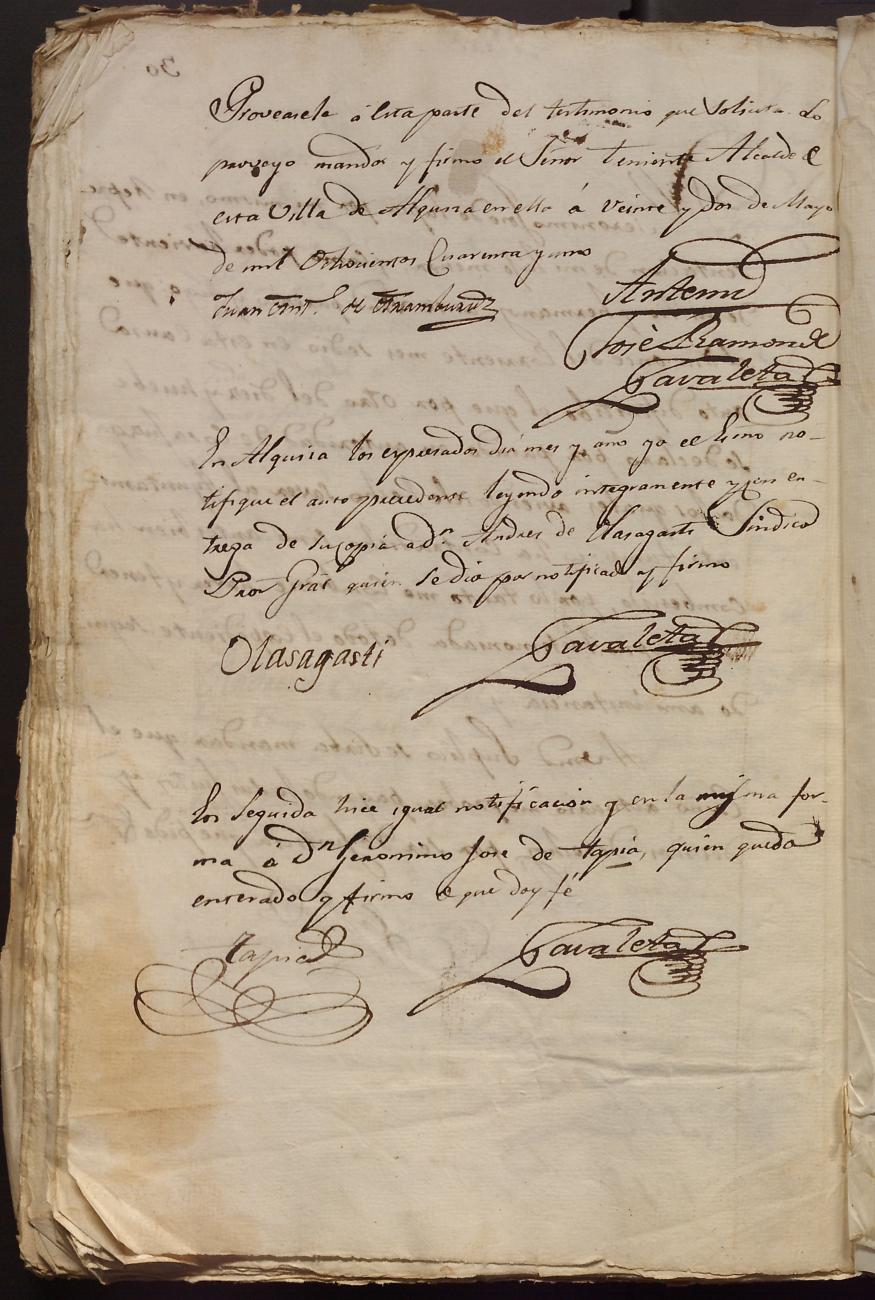 Proveasele á esta parte del testimonio que solicita. Lo
proveyo mando y firmo el Señor teniente Alcalde de
esta Villa de Alquiza en ella á veinte y dos de Mayo
de mil ochocientos Cuarenta y uno
Juan Antº de Aramburu
Antemi
José Ramon de
Zavaleta
En Alquiza los expresados dia mes y año yo el Esno no-
tifique el auto precedente leyendo integramente y en en-
trega de su copia a Dn Andres de Olasagasti Sindico
Pror Gral quien se dio por notificado y firmo
Olasagasti
Zavaleta
En Seguida hice igual notificacion y en la misma for-
ma á Dn Geronimo Jose de Tapia, quien quedo
enterado y firmo de que doy fé
Tapia
Zavaleta